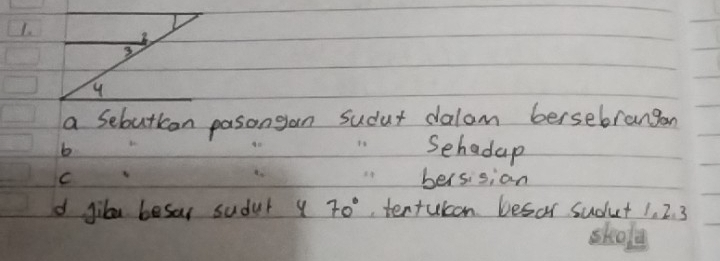 1.
1
2
3
4
a Sebutkan pasangan sudut dalam bersebrangan
b " " " Sehadap
c " " " bersisian
d jika besar sudut 4 70°, tentukan besar sudut 1, 2, 3
skola